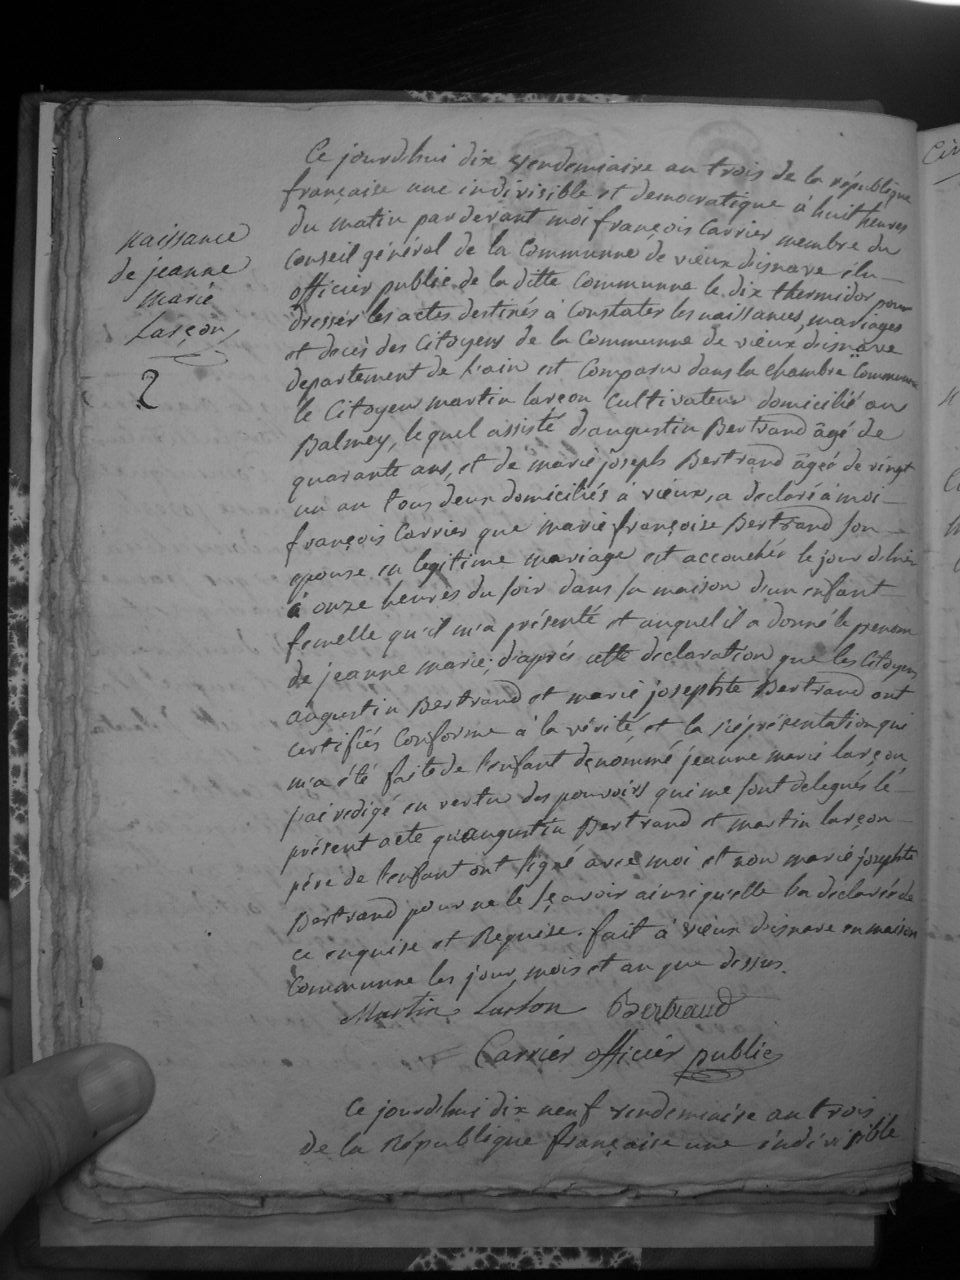 Ce jourd'hui dix vendemiaire an trois de la république
française une indivisible et democratique à huit heures
du matin par devant moi françois Carrier membre du
Conseil général de la Communne de vieux disnave élu
officier public de la ditte Communne le dix thermidor pour
dresser les actes destinés à Constater les naissances, mariages
et decès des Citoyens de la Communne de vieux disnave
departement de l'ain est Comparu dans la chambre Communne
le Citoyen martin larçon Cultivateur domicilié au
Balmey, lequel assisté d'augustin Bertrand âgé de
quarante ans, et de marie joseph Bertrand âgéé de vingt
un an tous deux domiciliés à vieux, a declaré à moi
françois Carrier que marie françoise Bertrand son
epouse en legitime mariage est accouchée le jour d'hier
à onze heures du soir dans sa maison d'un enfant
femelle qu'il m'a présenté et auquel il a donné le prenom
de jeanne marie; d'après cette declaration que les Citoyens
augustin Bertrand et marie josephte Bertrand ont
certifiés Conforme à la vérité, et la représentation qui
m'a été faite de l'enfant denommé jeanne marie larçon
j'ai redigé en vertu des pouvoirs qui me sont delegués le
présent acte qu'augustin Bertrand et martin larçon
père de l'enfant ont signé avec moi et non marie josephte
Bertrand pour ne le sçavoir ainsi qu'elle l'a declarée de
ce enquise et Requise. fait à vieux disnave en maison
Communne les jour mois et an que dessus.
Martin Larson Bertrand
Carrier officier public
naissance
de jeanne
marie
Larçon
2
Ce jourd'hui dix neuf vendemiaire an trois
de la République française une indivisible